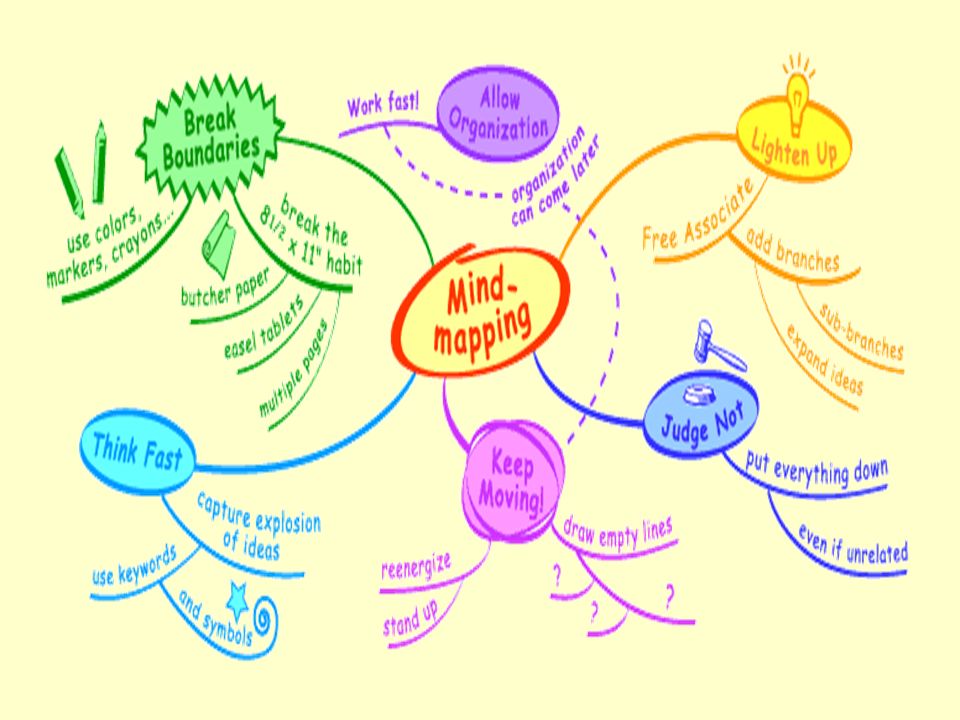 Mind-
mapping
Break
Boundaries
use colors,
markers, crayons...
break the
8 1/2 x 11" habit
butcher paper
easel tablets
multiple pages
Allow
Organization
Work fast!
organization
can come later
Lighten Up
Free Associate
add branches
sub-branches
expand ideas
Judge Not
put everything down
even if unrelated
Keep
Moving!
draw empty lines
?
?
?
reenergize
stand up
Think Fast
capture explosion
of ideas
use keywords
and symbols